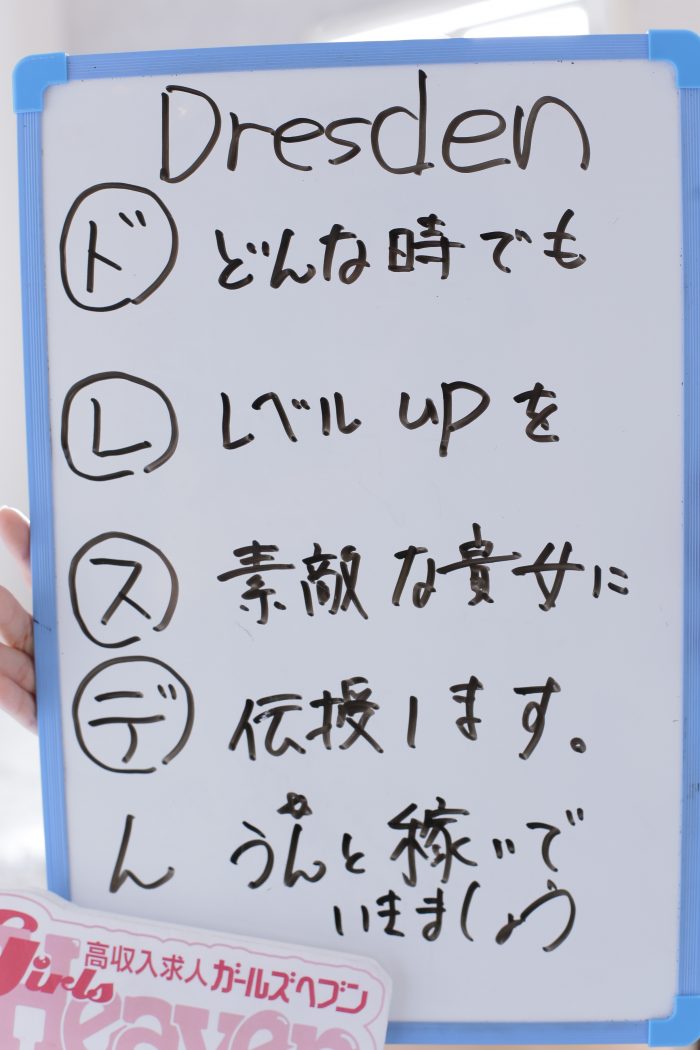 Dresden
ド どんな時でも
レ レベルupを
ス 素敵な貴女に
デ 伝授します。
ん うんと稼いで
いきましょう
高収入求人ガールズヘブン
Girls
Heaven